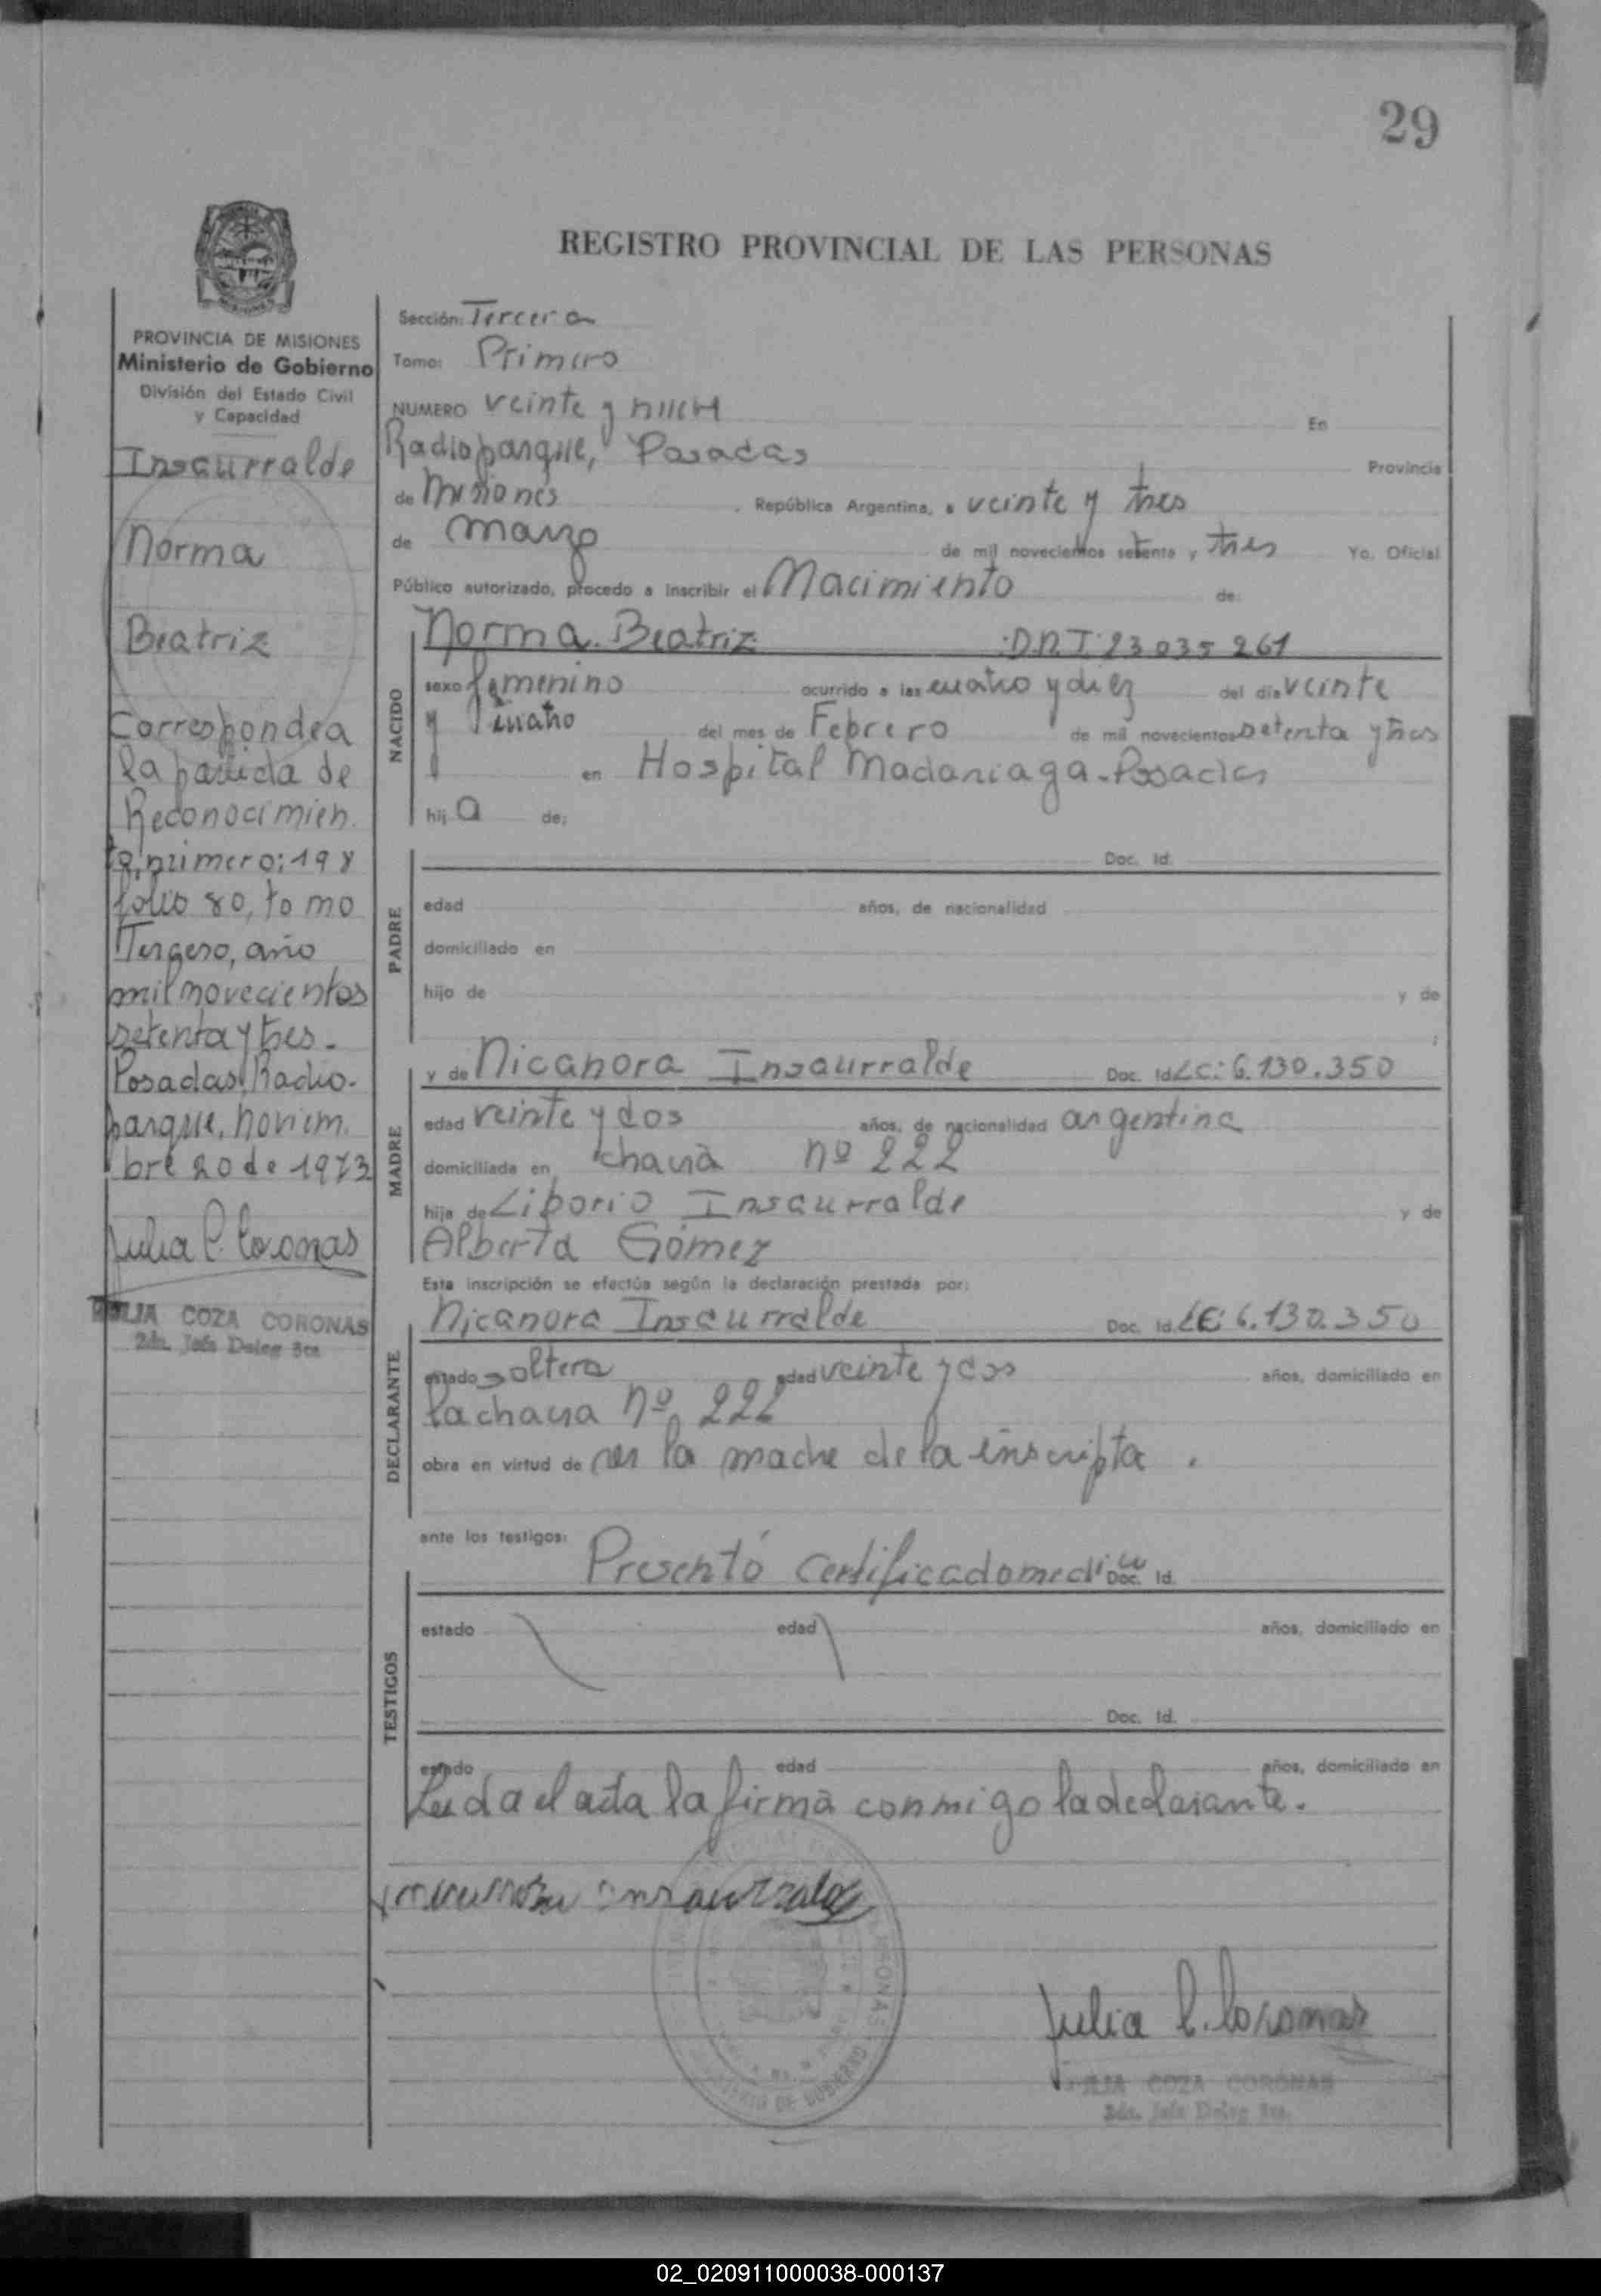 29
REGISTRO PROVINCIAL DE LAS PERSONAS
PROVINCIA DE MISIONES
Ministerio de Gobierno
División del Estado Civil
y Capacidad
Insaurralde
Norma
Beatriz
Corresponde a
la partida de
Reconocimien.
to, número: 198
folio 80, tomo
Tercero, año
mil novecientos
setenta y tres.
Posadas, Radio.
parque, noviem.
bre 20 de 1973
Julia C. Coronas
JULIA COZA CORONAS
2da. Jefe Deleg 3ra
Sección: Tercera
Tomo: Primero
NUMERO veinte y nueve En
Radioparque, Posadas Provincia
de Misiones , República Argentina, a veinte y tres
de marzo de mil novecientos setenta y tres Yo. Oficial
Público autorizado, procedo a inscribir el Nacimiento de:
NACIDO
Norma Beatriz D.N.I 23 035 261
sexo femenino ocurrido a las cuatro y diez del día veinte
y cuatro del mes de Febrero de mil novecientos setenta y tres
en Hospital Madariaga - Posadas
hij a de:
PADRE
Doc. Id.
edad años, de nacionalidad
domiciliado en
hijo de y de
;
MADRE
y de Nicanora Insaurralde Doc. Id. LC: 6.130.350
edad veinte y dos años, de nacionalidad argentina
domiciliada en chacra nº 222
hija de Liborio Insaurralde y de
Alberta Gómez
Esta inscripción se efectúa según la declaración prestada por:
DECLARANTE
Nicanora Insaurralde Doc. Id. LC: 6.130.350
estado soltera edad veinte y dos años, domiciliado en
la chacra nº 222
obra en virtud de ser la madre de la inscripta .
ante los testigos:
TESTIGOS
Presentó certificado medico Doc. Id.
estado edad años, domiciliado en
Doc. Id.
estado edad años, domiciliado en
Leida el acta la firma conmigo la declarante.
Insaurralde
Julia C. Coronas
JULIA COZA CORONAS
2da. Jefe Deleg 3ra.
02_020911000038-000137